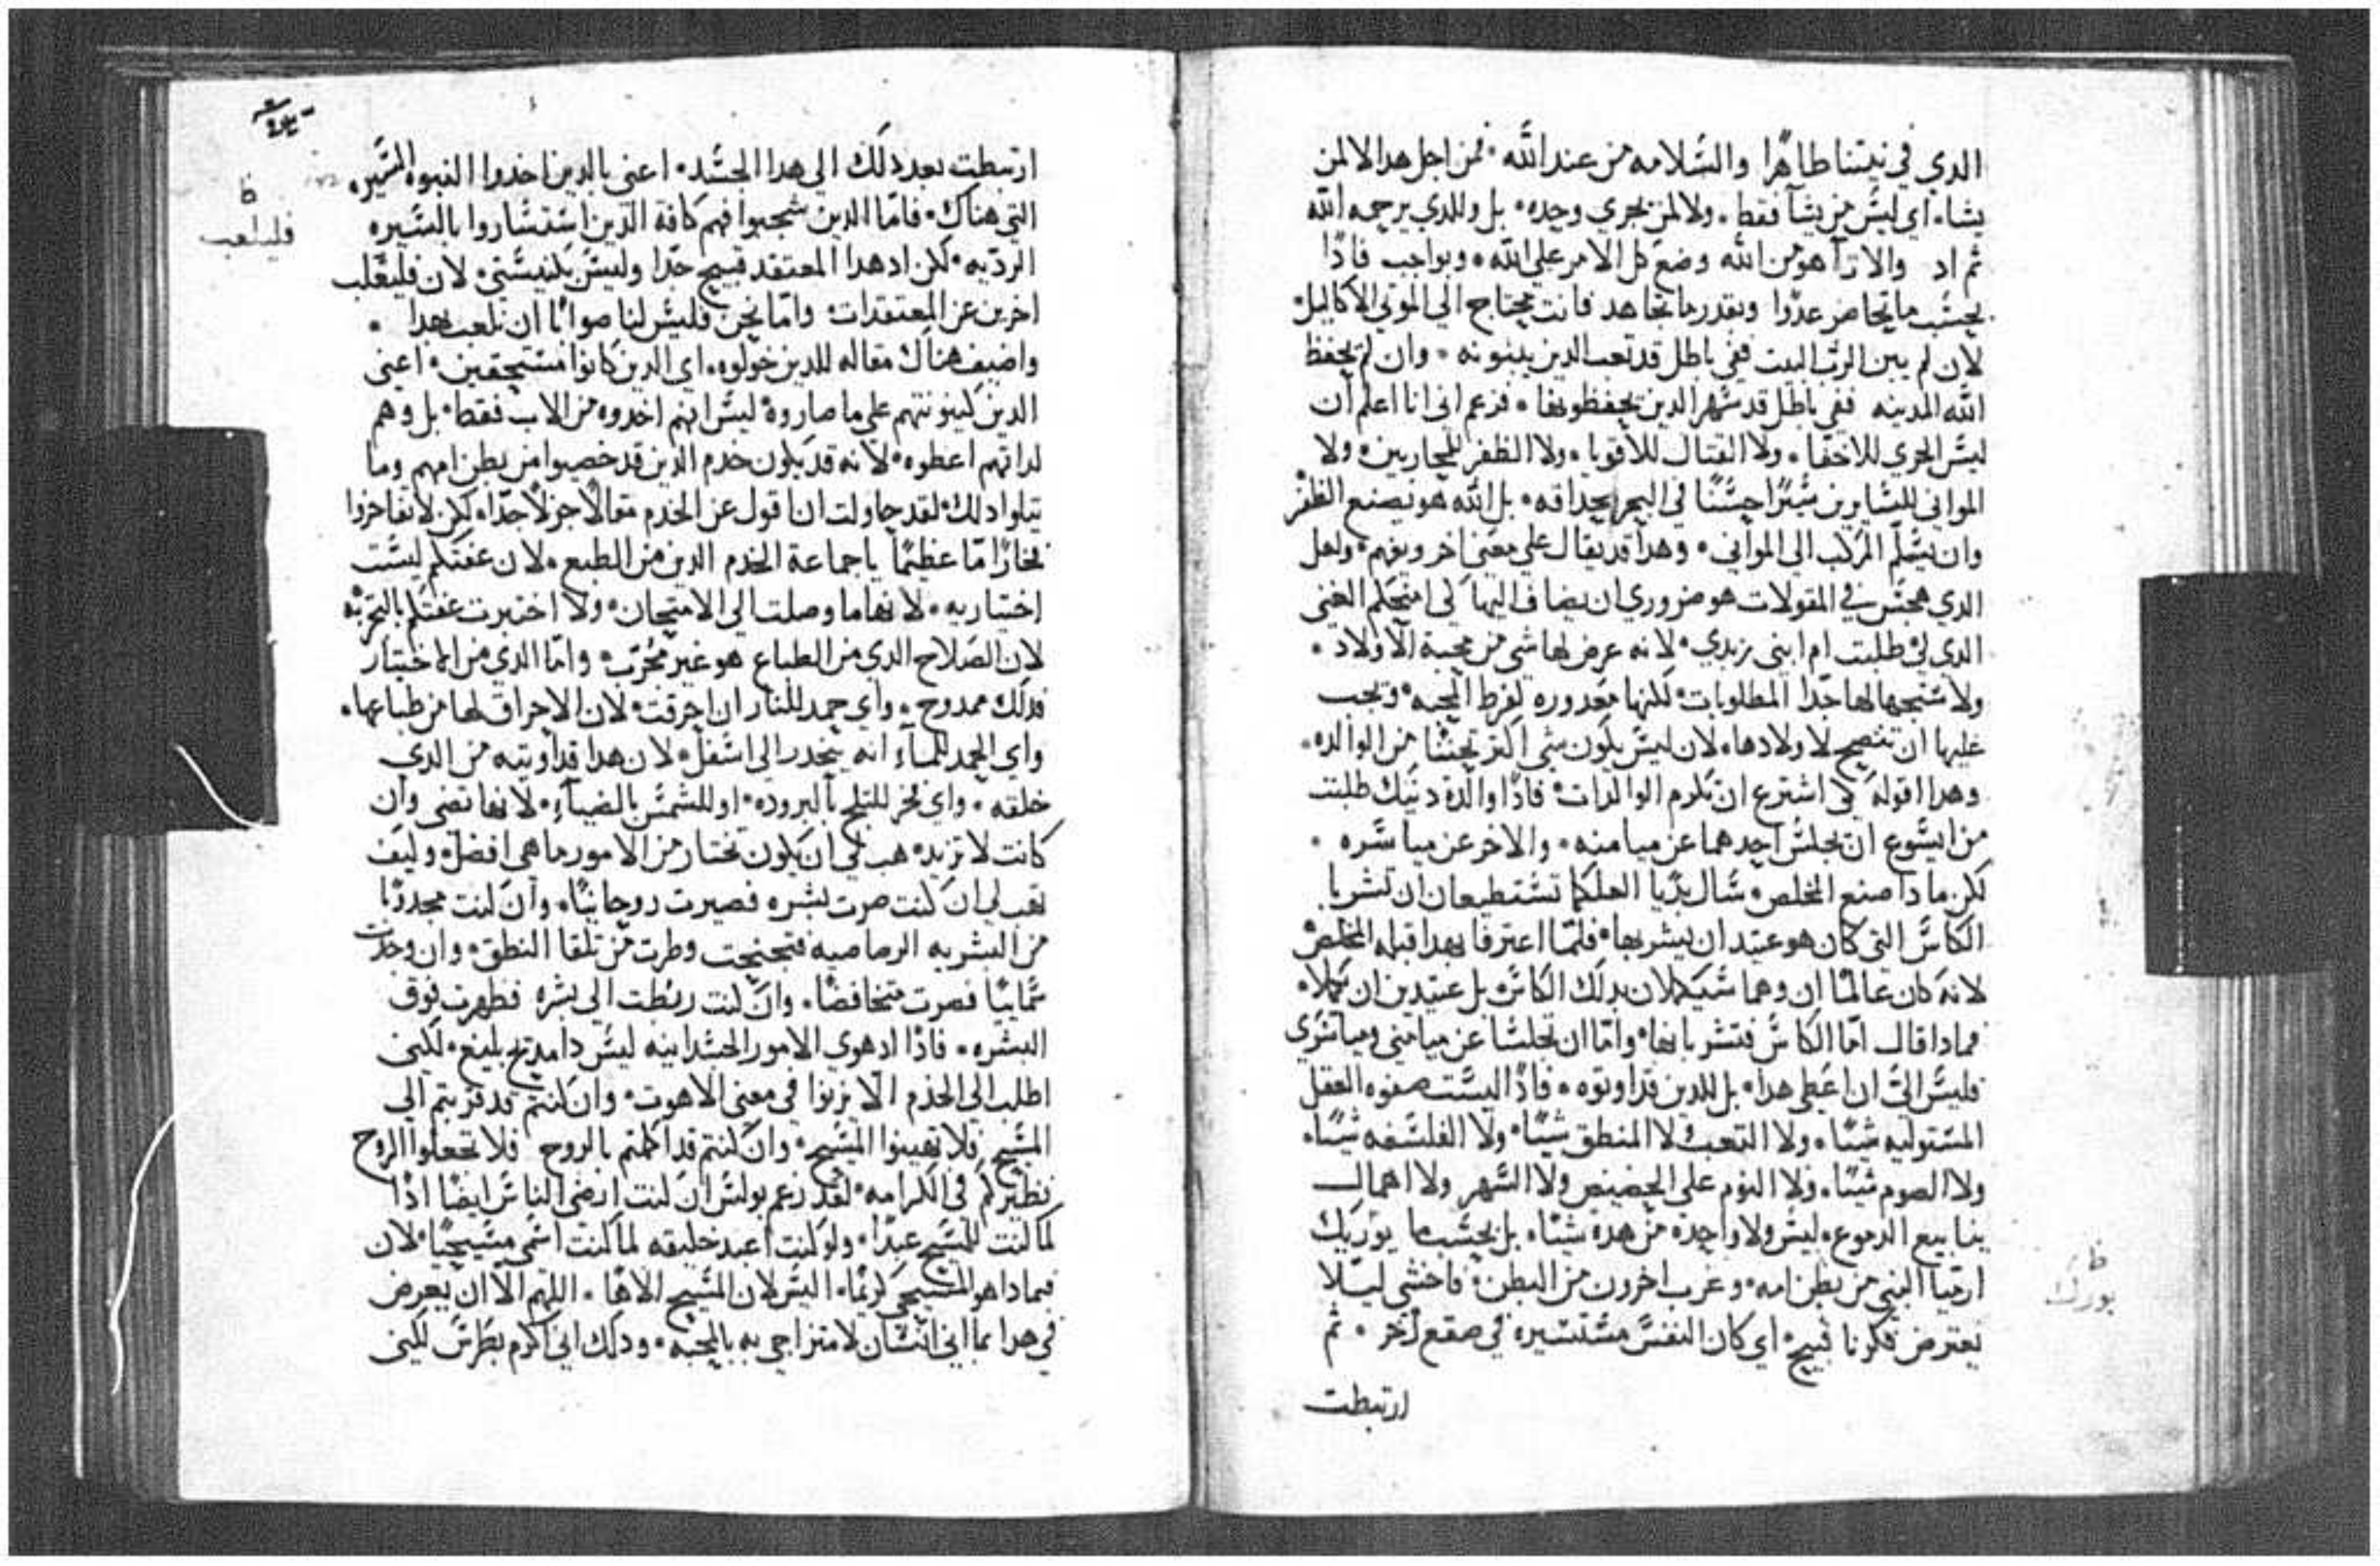 الدي في نيتنا طاهرًا والسلامه من عند الله ٠ فمن اجل هدا لا لمن
يشاء اي ليس من يشآ فقط ٠ ولا لمن يجري وحده ٠ بل وللدي يرحمه الله
ثم اد والارآ هو من الله وضع كل الامر علي الله ٠ وبواجب فادًا
بحسب ما تحاضر عدوا وبقدر ما تجاهد فانت محتاج الي الموتي الاكاليل
لان لم يبن الرب البيت ففي باطل قد تعب الدين يبنونه ٠ وان لم يحفظ
الله المدينه ففي باطل قد سهر الدين يحفظونها ٠ فزعم اني انا اعلم ان
ليس الجري للاخفا ٠ ولا القتال للاقويا ٠ ولا الظفر للمحاربين ٠ ولا
المواني للسايرين سيرًا حسنًا في البحر بحداقه ٠ بل الله هو يصنع الظفر
وان يسلم المركب الي المواني ٠ وهدا قد يقال علي معني اخر ويفهم ٠ ولعل
الدي هجس في المقولات هو ضروري ان يضاف اليها لي امنحكم الغني
الدي لي طلبت ام ابني زبدي ٠ لانه عرض لها شي من محبة الاولاد ٠
ولا سنحبها لها جدا المطلوبات لكنها معدوره لفرط المحبه ٠ ويجب
عليها ان تنصح لاولادها ٠ لان ليس يكون شي اكتر تحننًا من الوالده ٠
وهدا اقوله لكي اشترع ان تكرم الوالدات ٠ فادًا والدة دنيك طلبت
من ايسوع ان يجلس احدهما عن ميامنه ٠ والاخر عن مياسره ٠
لكن مادا صنع المخلص سال بديا العلكما تستطيعان ان تشربا
الكاس التي كان هو عتيد ان يشربها ٠ فلما اعترفا بهدا قبله المخلص
لانه كان عالمًا ان وهما سيكملان بدلك الكاس بل عتيدين ان يكملا ٠
فمادا قال اما الكاس فتشربانها ٠ واما ان تجلسا عن ميامني ومياسري
فليس الي ان اعطي هدا ٠ بل للدين قد اوتوه ٠ فادًا اليست صفوه العقل
المستوليه شيئًا ٠ ولا التعب ولا المنطق شيئًا ٠ ولا الفلسفه شيئًا ٠
ولا الصوم شيئًا ٠ ولا النوم علي الحضيض ولا السهر ولا اهمال
ينابيع الدموع ٠ ليس ولا واحده من هده شيئًا ٠ بل بحسب ما يورك
ارميا النبي من بطن امه ٠ وغرب اخرون من البطن ٠ فاخشي ليلا
يعترض فكرنا قبيح ٠ اي كان النفس مستسيره في صقع اخر ٠ ثم
ارتبطت
ظ
بورك
ارتبطت بعد دلك الي هدا الجسد ٠ اعني بالدين اخدوا النبوه السيره
التي هناك ٠ فاما الدين شجبوا فهم كافة الدين استساروا بالسيره
الرديه ٠ لكن اد هدا المعتقد قبيح جدا وليس بكنيستي ٠ لان فليقلب
اخرين عن المعتقدات ٠ واما نحن فليس لنا صوابًا ان نلعب بهدا ٠
واضيف هناك مقاله للدين خولوه ٠ اي الدين كانوا مستحقين ٠ اعني
الدين كينونتهم علي ما صاروه ليس انهم اخدوه من الاب فقط ٠ بل وهم
لداتهم اعطوه ٠ لانه قد يكون خدم الدين قد خصيوا من بطن امهم وما
يتلوا دلك ٠ لقد حاولت ان اقول عن الخدم مقالًا جزلًا جدًا ٠ لكن لا تفاخروا
فخارًا ما عظيمًا يا جماعة الخدم الدين من الطبع ٠ لان عفتكم ليست
اختياريه ٠ لانها ما وصلت الي الامتحان ٠ ولا اختبرت عفتكم بالتجربه
لان الصلاح الدي من الطباع هو غير مجرب ٠ واما الدي من الاختيار
فدلك ممدوح ٠ واي حمد للنار ان احرقت ٠ لان الاحراق لها من طباعها ٠
واي الحمد للمآء انه ينحدر الي اسفل ٠ لان هدا قد اوتيه من الدي
خلقه ٠ واي فخر للتلج بالبروده ٠ او للشمس بالضيآء ٠ لانها تضي وان
كانت لا تريد ٠ هب لي ان يكون تختار من الامور ما هي افضل ٠ وكيف
تهب لي ان كنت صرت بشره فصيرت روحانيًا ٠ وان كنت مجددًا
من البشريه الرصاصيه فتجنحت وطرت من تلقا النطق ٠ وان وجدت
سمايًا فصرت متخافضًا ٠ وان كنت ربطت الي بشره فظهرت فوق
البشره ٠ فادًا اد هوي الامور الجسدانيه ليس دا مديح بليغ ٠ لكني
اطلب الي الخدم الا يزنوا في معني الاهوت ٠ وان كنتم قد قربتم الي
المسيح فلا تهينوا المسيح ٠ وان كنتم قد اكملتم بالروح فلا تجعلوا الروح
نظيركم في الكرامه ٠ لقد زعم بولس ان كنت ارضي الناس ايضًا ادًا
لما كنت للمسيح عبدًا ٠ ولو كنت اعبد خليقه لما كنت اسمي مسيحيًا ٠ لان
فيمادا هو المسيحي كريمًا ٠ اليس لان المسيح الاهًا ٠ اللهم الا ان يعرض
في هدا بما اني انسان لامتزاجي به بالمحبه ٠ ودلك اني اكرم بطرس لكني
ظ
فليلعب